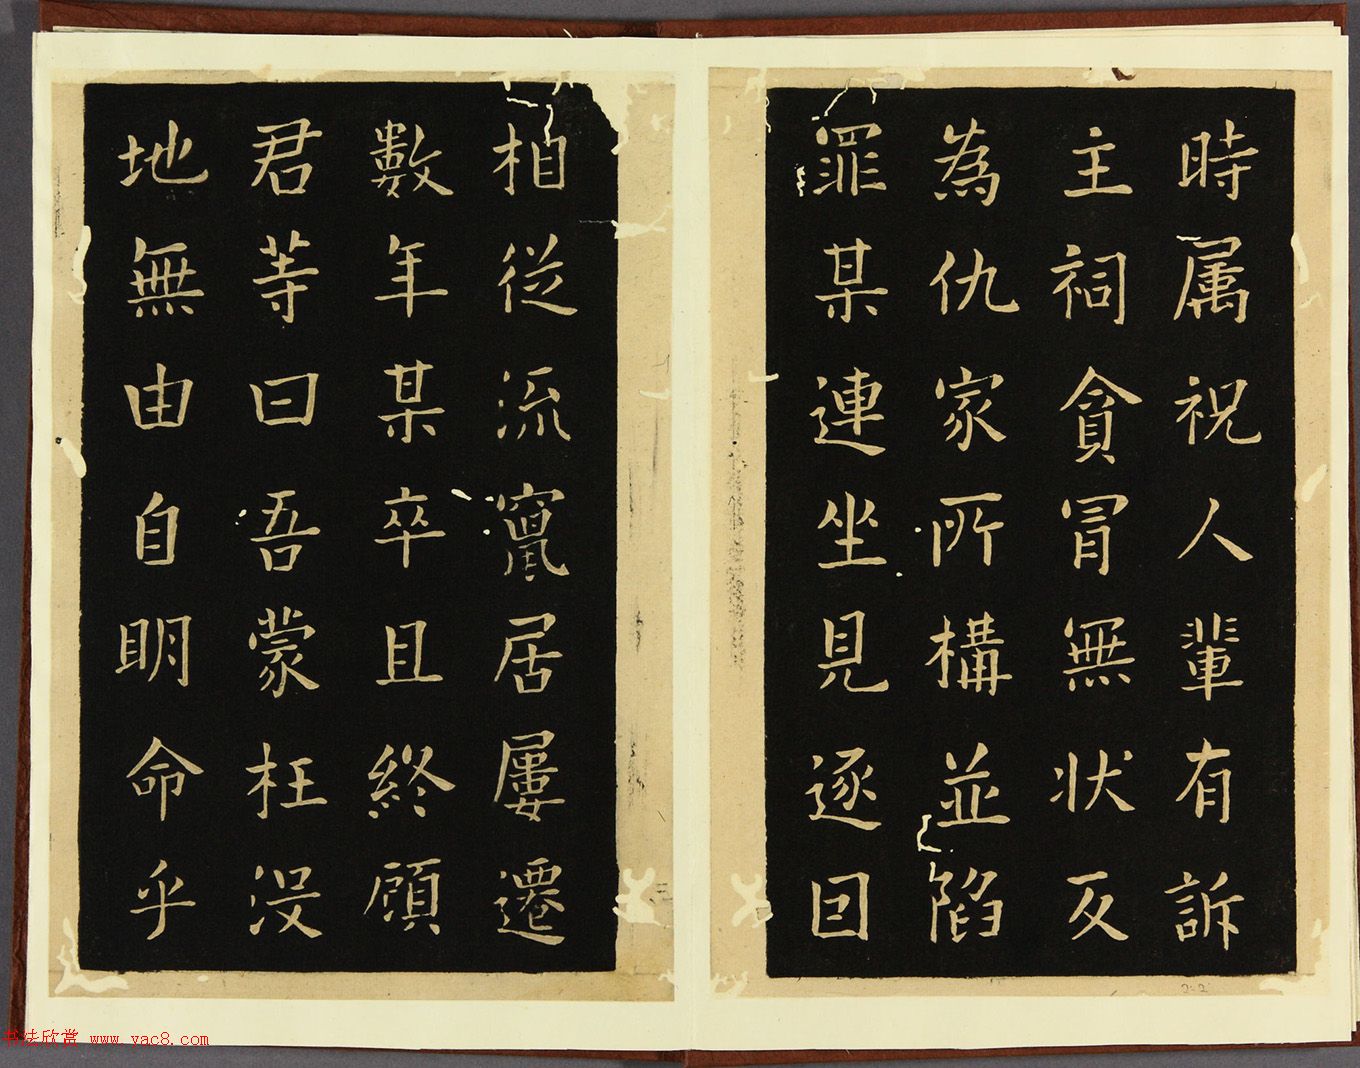 時属祝人輩有訴
主祠貪冒無状反
為仇家所構並陷
罪某連坐見逐因
柏從流竄居屢遷
數年某卒且終顧
君等曰吾蒙枉没
地無由自明命乎
三
2:2
书法欣赏 www.yac8.com